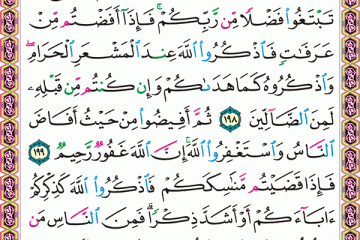 تَبْتَغُوا۟ فَضْلًا مِّن رَّبِّكُمْ ۚ فَإِذَآ أَفَضْتُم مِّنْ
عَرَفَـٰتٍ فَٱذْكُرُوا۟ ٱللَّهَ عِندَ ٱلْمَشْعَرِ ٱلْحَرَامِ ۖ
وَٱذْكُرُوهُ كَمَا هَدَىٰكُمْ وَإِن كُنتُم مِّن قَبْلِهِۦ
لَمِنَ ٱلضَّآلِّينَ ١٩٨ ثُمَّ أَفِيضُوا۟ مِنْ حَيْثُ أَفَاضَ
ٱلنَّاسُ وَٱسْتَغْفِرُوا۟ ٱللَّهَ ۚ إِنَّ ٱللَّهَ غَفُورٌ رَّحِيمٌ ١٩٩
فَإِذَا قَضَيْتُم مَّنَـٰسِكَكُمْ فَٱذْكُرُوا۟ ٱللَّهَ كَذِكْرِكُمْ
ءَابَآءَكُمْ أَوْ أَشَدَّ ذِكْرًا ۗ فَمِنَ ٱلنَّاسِ مَن